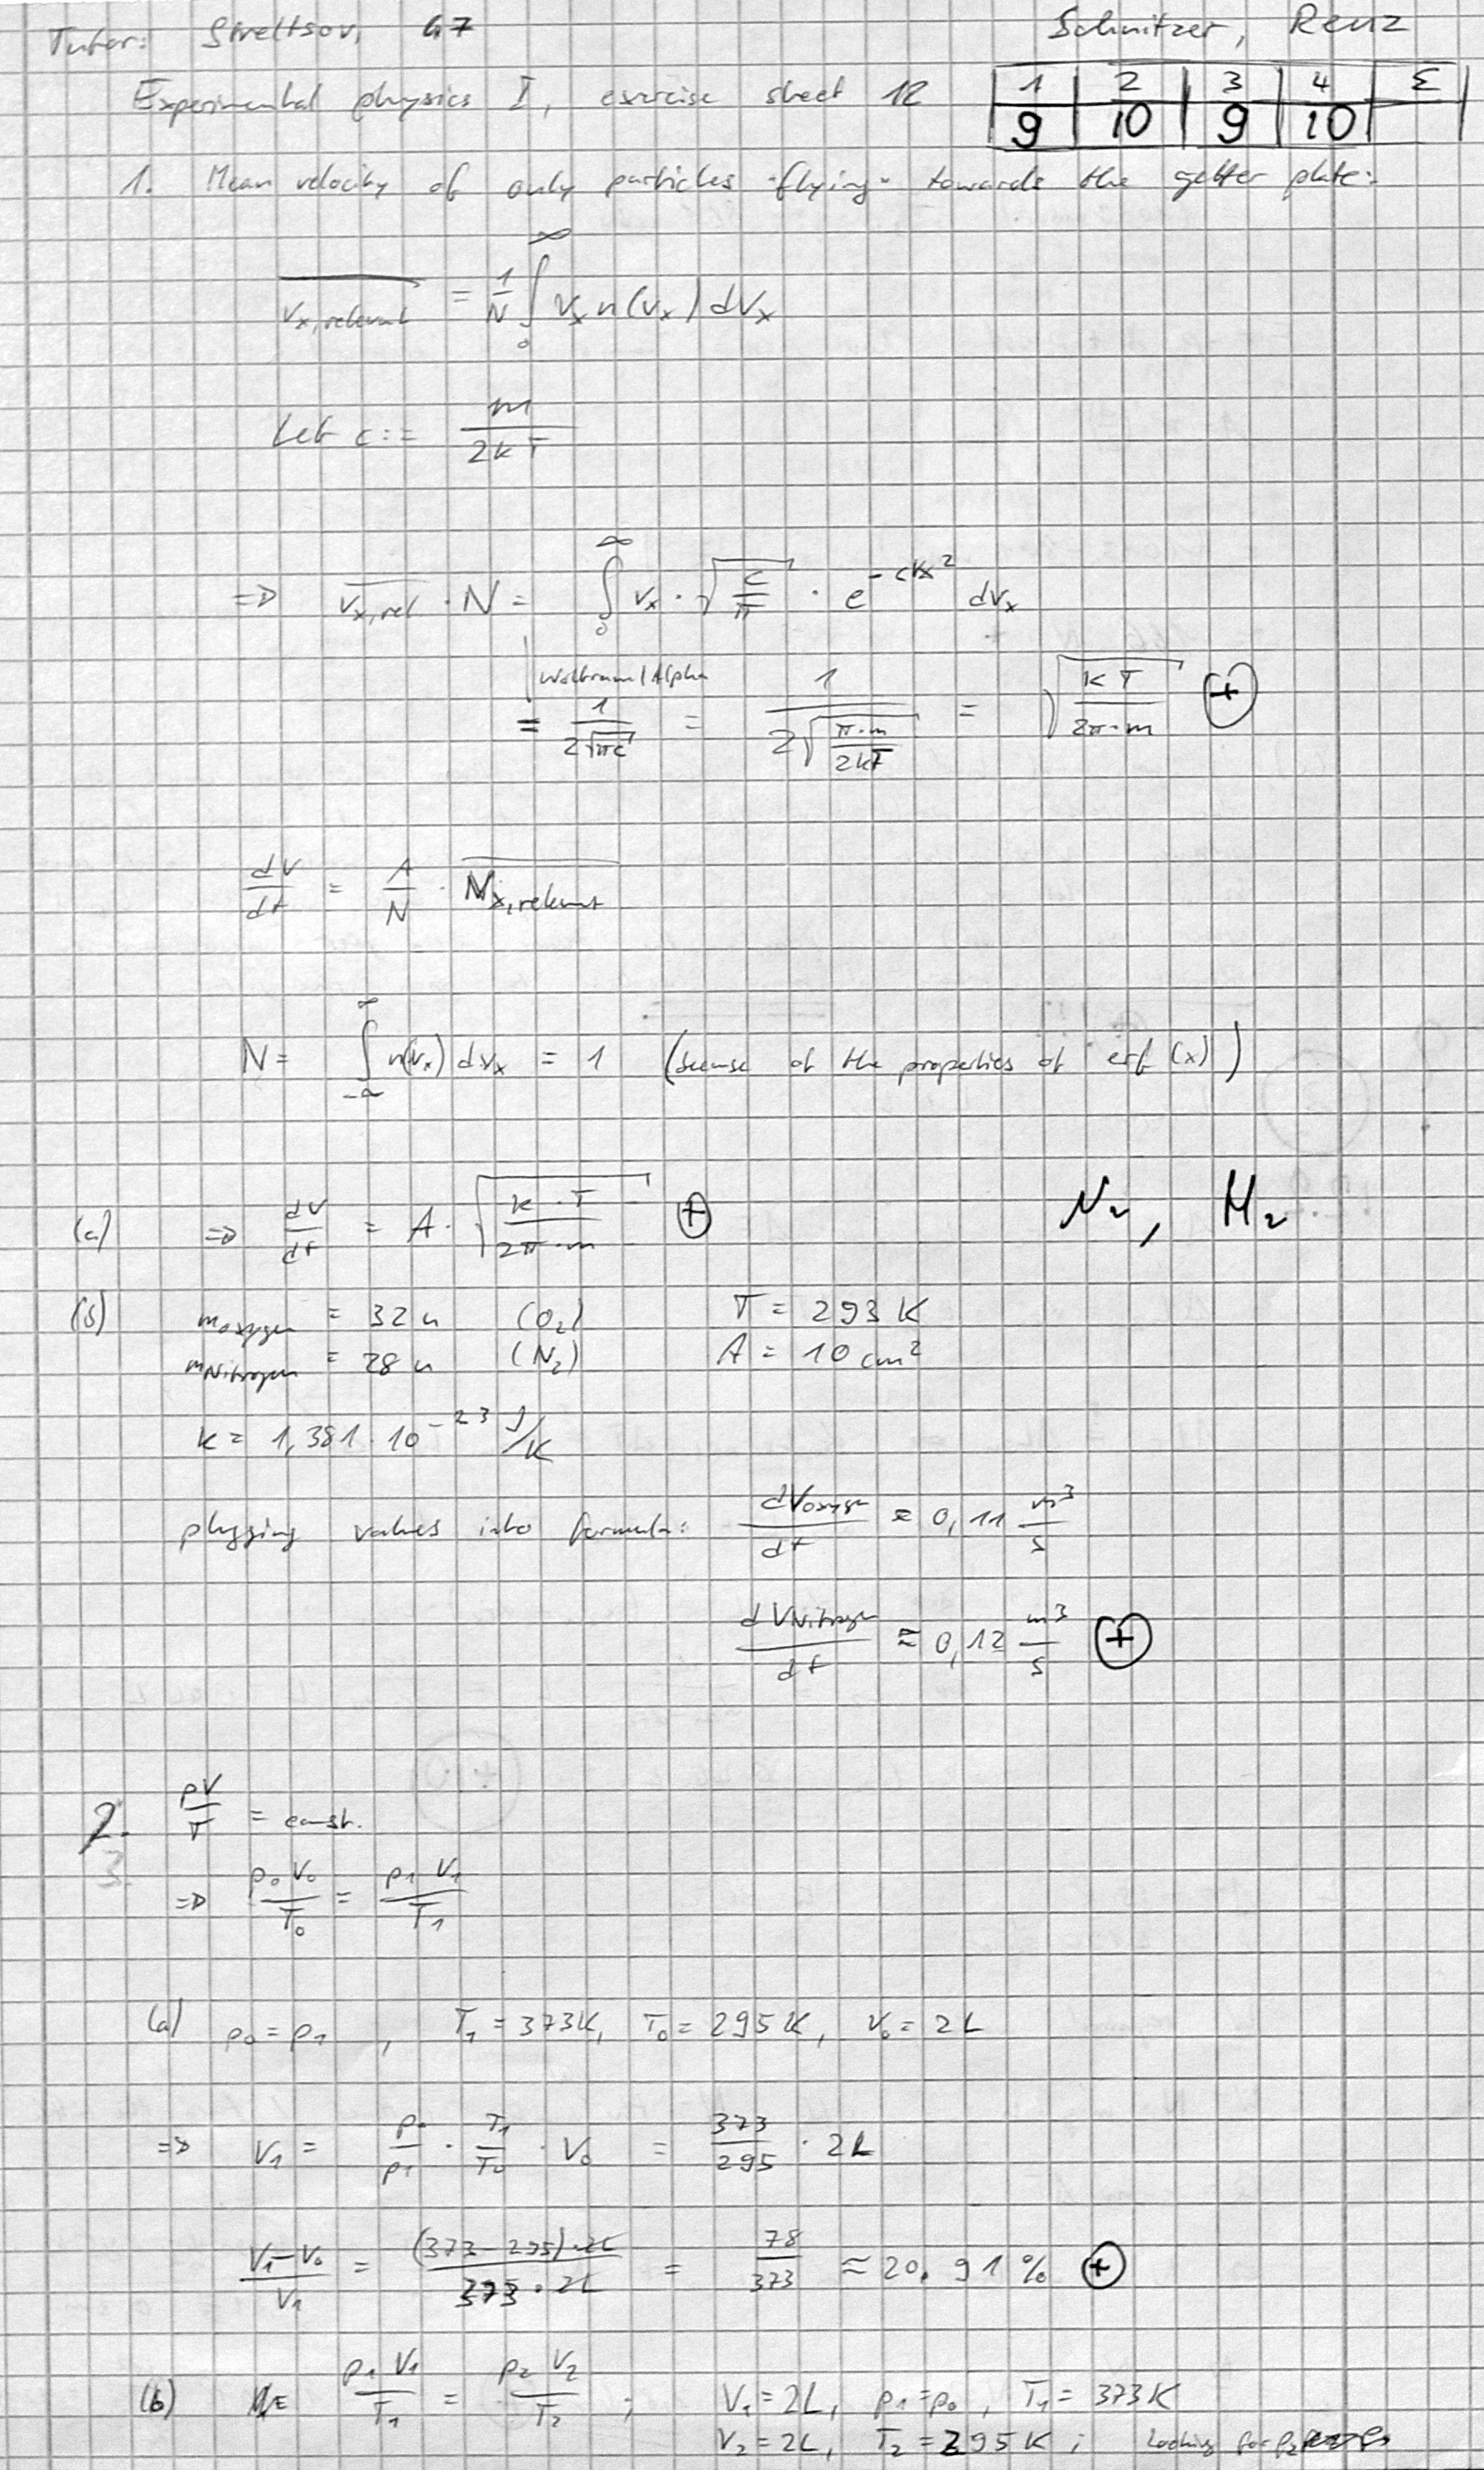 Tutor: Streltsov, G7
Schnitzer, Renz
Experimental physics I, exercise sheet 12
1 2 3 4 Σ
9 10 9 10
1. Mean velocity of only particles "flying" towards the getter plate:
\overline{v_{x,relevant}} = \frac{1}{N} \int_0^∞ v_x n(v_x) dv_x
Let c := \frac{m}{2kT}
=> \overline{v_{x,rel.}} · N = \int_0^∞ v_x · \sqrt{\frac{c}{π}} · e^{-cv_x^2} dv_x
| Wolfram|Alpha
= \frac{1}{2\sqrt{πc}} = \frac{1}{2\sqrt{\frac{π·m}{2kT}}} = \sqrt{\frac{kT}{2π·m}} (+)
\frac{dV}{dt} = \frac{A}{N} · \overline{N_{x,relevant}}
N = \int_{-∞}^{∞} n(v_x) dv_x = 1 (because of the properties of erf(x))
(a) => \frac{dV}{dt} = A · \sqrt{\frac{k·T}{2π·m}} (+)
N₂, H₂
(b) m_{oxygen} = 32 u (O₂) T = 293 K
m_{Nitrogen} = 28 u (N₂) A = 10 cm²
k = 1,381 · 10^{-23} J/K
plugging values into formula: \frac{dV_{oxygen}}{dt} ≈ 0,11 \frac{m³}{s}
\frac{dV_{Nitrogen}}{dt} ≈ 0,12 \frac{m³}{s} (+)
2. \frac{pV}{T} = const.
=> \frac{p_0 V_0}{T_0} = \frac{p_1 V_1}{T_1}
(a) p_0 = p_1 , T_1 = 373K, T_0 = 295K, V_0 = 2L
=> V_1 = \frac{p_0}{p_1} · \frac{T_1}{T_0} · V_0 = \frac{373}{295} · 2L
\frac{V_1 - V_0}{V_1} = \frac{(373-295)·2L}{373·2L} = \frac{78}{373} ≈ 20.91 % (+)
(b) \frac{p_1 V_1}{T_1} = \frac{p_2 V_2}{T_2} ; V_1 = 2L, p_1 = p_0 , T_1 = 373K
V_2 = 2L, T_2 = 295K ; looking for p_2